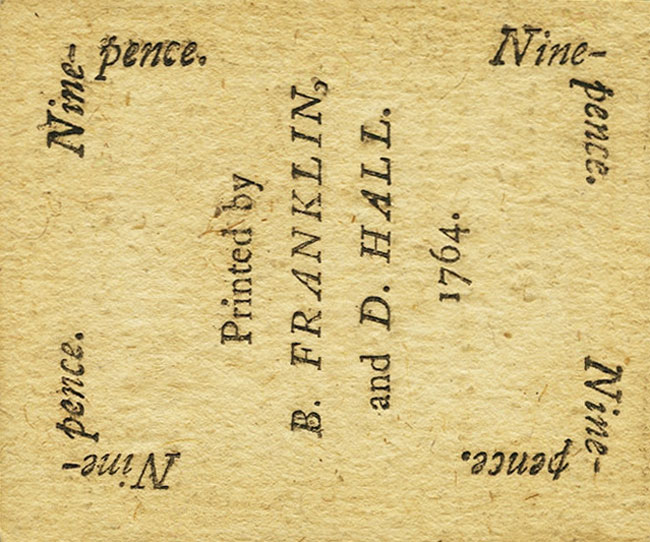 Nine-
pence.
Nine-
pence.
Printed by
B. FRANKLIN,
and D. HALL.
1764.
Nine-
pence.
Nine-
pence.